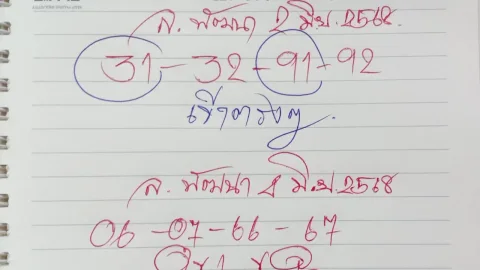 ล. พัฒนา 2 มิ.ย. 2568
31-32-91-92
เข้าตรงๆ
ล. พัฒนา 4 มิ.ย. 2568
06-07-66-67